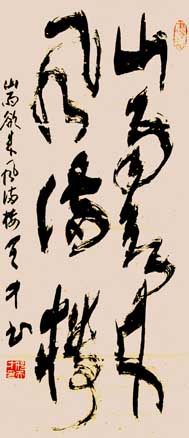 山雨欲来
风满楼
山雨欲来风满楼